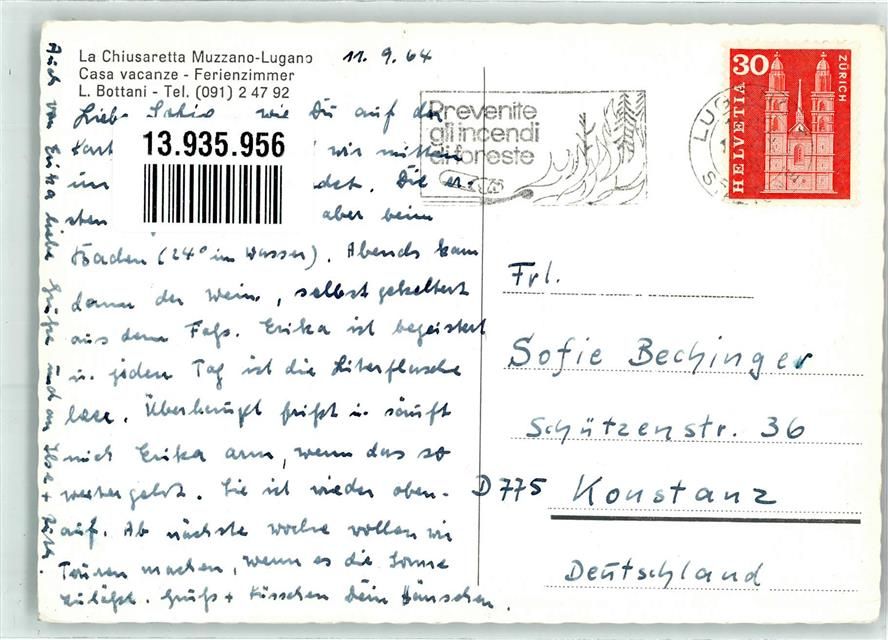 La Chiusaretta Muzzano-Lugano
Casa vacanze - Ferienzimmer
L. Bottani - Tel. (091) 2 47 92
11. 9. 64
wie Du auf der
Kart wir mitten
im Die
sten aber beim
Baden (24° im Wasser). Abends kam
dann der Wein, selbst gekeltert
aus dem Faß. Erika ist begeistert
u. jeden Tag ist die Literflasche
leer. Überhaupt frißt u. säuft
mich Erika arm, wenn das so
weitergeht. Sie ist wieder oben-
auf. Ab nächste Woche wollen wir
Touren machen, wenn es die Sonne
zuläßt. Gruß + Küsschen Dein Hänschen.
Auch von Erika liebe Grüße und an Ilse +
13.935.956
Prevenite
gli incendi
di foreste
LUG
30
HELVETIA
ZÜRICH
Frl.
Sofie Bechinger
Schützenstr. 36
D 775 Konstanz
Deutschland